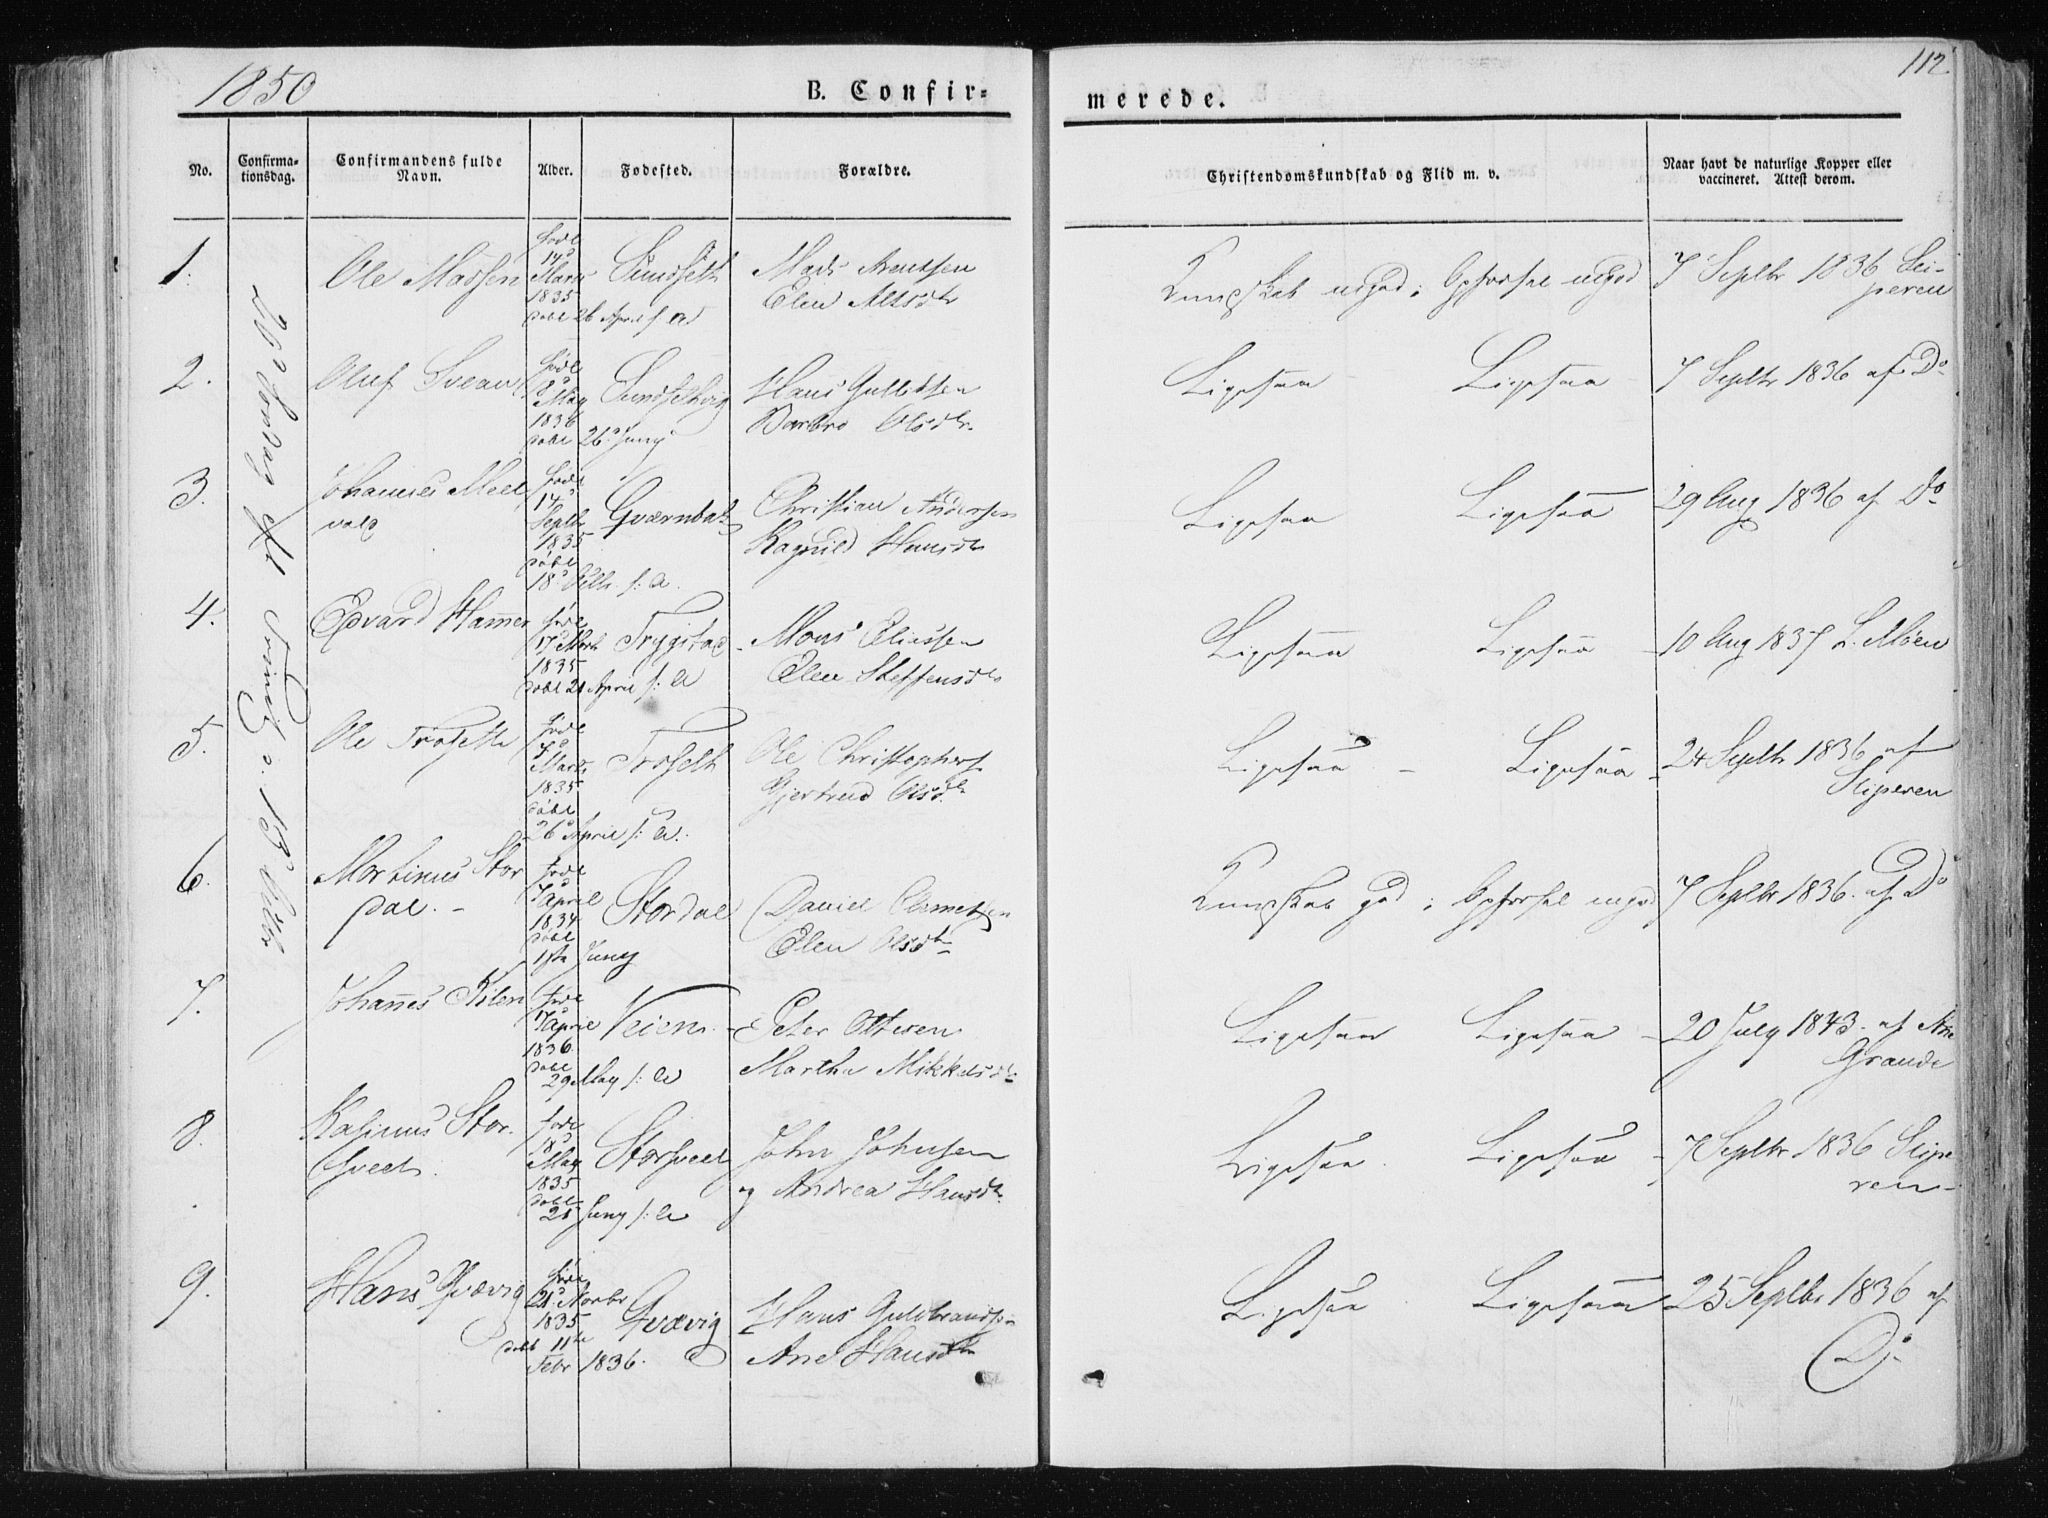 1850
B. Confir-
merede.
112
No.
Confirma-
tionsdag.
Confirmandens fulde
Navn.
Alder.
Fødested.
Forældre.
Christendomskundskab og Flid m. v.
Naar havt de naturlige Kopper eller
vaccineret. Attest derom.
20d Søndag Trinit:
1.
Ole Madsen
født
14d
Marts
1835
døbt 26 April s. A
Sundseth
Mads Arentsen
Elen
Kundskab mgod; Opførsel mgod
7 Septbr 1836 Sli-
peren
2.
Oluf Svean
født
May
1836
døbt 26d Juny
Sundsethvig
Hans Gulbdsen
Barbro Olsdtr
Ligesaa
Ligesaa
7 Septbr 1836 af Do
3.
Johannes Meel
vold
født
14d
Septbr
1835
døbt
18d s. A.
Christian Andersen
Ragnild Hansdtr
Ligesaa
Ligesaa
29 Aug 1836 af Do
4.
Edvard Hammer
født
17d
1835
døbt 21 April s: A
Trygstad
Mons Eliassen
Elen Steffensdtr
Ligesaa
Ligesaa
10 Aug 1837 L. Møen
5.
Ole Troseth
født
7d
Marts
1835
døbt
26d April s: A.
Troseth
Ole Christophers
Gjertrud Olsdtr
Ligesaa
Ligesaa
24 Septbr 1836 af
Sliperen
6.
Martinus Stor
dal.
født
7d
April
1834
døbt
Juny
Stordal
Daniel Clemetsen
Elen Olsdtr
Kundskab god; Opførsel mgod
7 Septbr 1836. af Do
7.
Johannes Kilen
født
17d
April
1836
døbt
29 May s: A
Veien
Peter Ottesen
Martha Mikkelsdtr
Ligesaa
Ligesaa
20 July 1843. af Arne
Grande
8.
Kasinus Stor.
sveet.
født
18d
May
1835
døbt
21 Juny s: A
Storsveet
John Johnsen
og Andrea Hansdtr
Ligesaa
Ligesaa
7 Septbr 1836 Slipe
ren
9.
Hans Qvævig
født
21d Novbr
1835
døbt 11te
Febr 1836.
Qvævig
Hans Guldbrands
Ane Hansdtr
Ligesaa
Ligesaa
25 Septbr 1836 af
Do